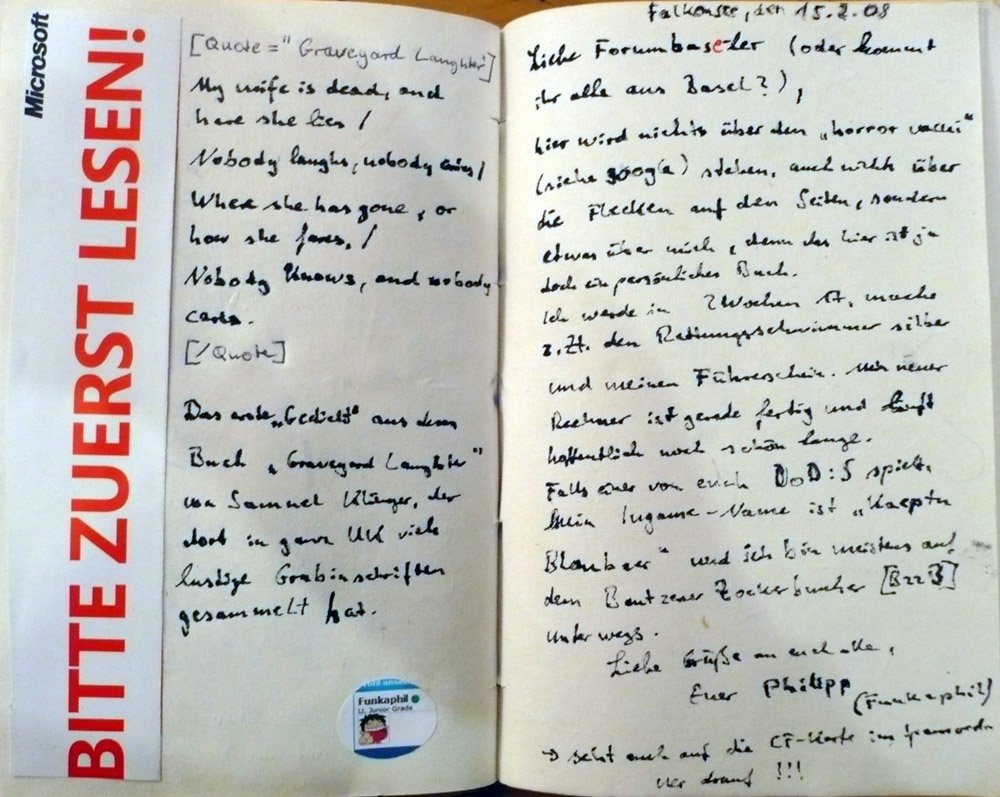 Microsoft
BITTE ZUERST LESEN!
[Quote="Graveyard Laughter"]
My wife is dead, and
here she lies /
Nobody laughs, nobody cries /
Where she has gone, or
how she fares, /
Nobody knows, and nobody
cares.
[/Quote]
Das erste „Gedicht" aus dem
Buch „Graveyard Laughter"
von Samuel Klinger, der
dort in ganz UK viele
lustige Grabinschriften
gesammelt hat.
Funkaphil
Lt. Junior Grade
Falkensee, den 15.2.08
Liebe Forumbaseler (oder kommt
ihr alle aus Basel?),
hier wird nichts über den „horror vacui"
(siehe google) stehen, auch nichts über
die Flecken auf den Seiten, sondern
etwas über mich, denn das hier ist ja
doch ein persönliches Buch.
Ich werde in 2 Wochen 17, mache
z. Zt. den Rettungsschwimmer silber
und meinen Führerschein. Mein neuer
Rechner ist gerade fertig und läuft
hoffentlich noch schön lange.
Falls einer von euch DoD:S spielt,
Mein Ingame-Name ist „Kaeptn
Blaubaer" und ich bin meistens auf
dem Bautzener Zockerbunker [BzzB]
unterwegs.
Liebe Grüße an euch alle,
Euer Philipp
(Funkaphil)
→ seht auch auf die CF-Karte im
drauf !!!